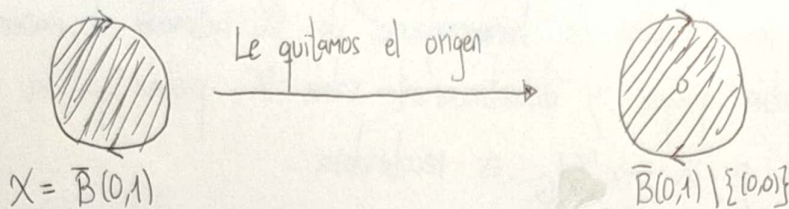 Le quitamos el origen
X = B̅(0,1)
B̅(0,1) \ {(0,0)}